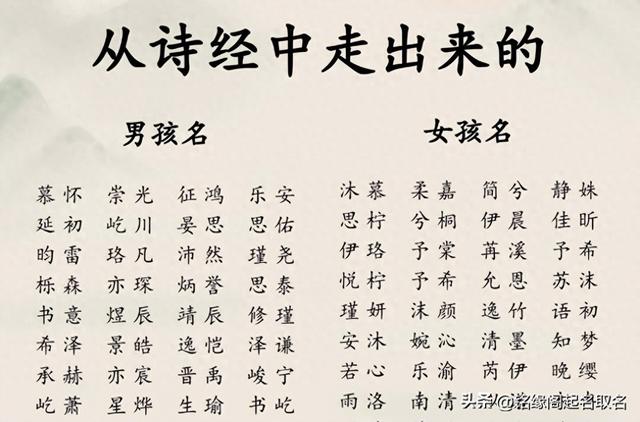 从诗经中走出来的
男孩名 女孩名
慕怀 崇光 征鸿 乐安 沐慕 柔嘉 简兮 静姝
延初 屹川 晏思 思佑 思柠 兮桐 伊晨 佳昕
昀雷 珞凡 沛然 瑾尧 伊珞 予棠 苒溪 予希
栎森 亦琛 炳誉 思泰 悦柠 予希 允恩 苏沫
书意 煜辰 靖辰 修瑾 瑾妍 沫颜 逸竹 语初
希泽 景皓 逸恺 泽谦 安沐 婉沁 清墨 知梦
承赫 亦宸 晋禹 峻宁 若心 乐渝 芮伊 晚缨
屹萧 星烨 生瑜 书屹 雨洛 南清
头条 @铭缘阁起名取名